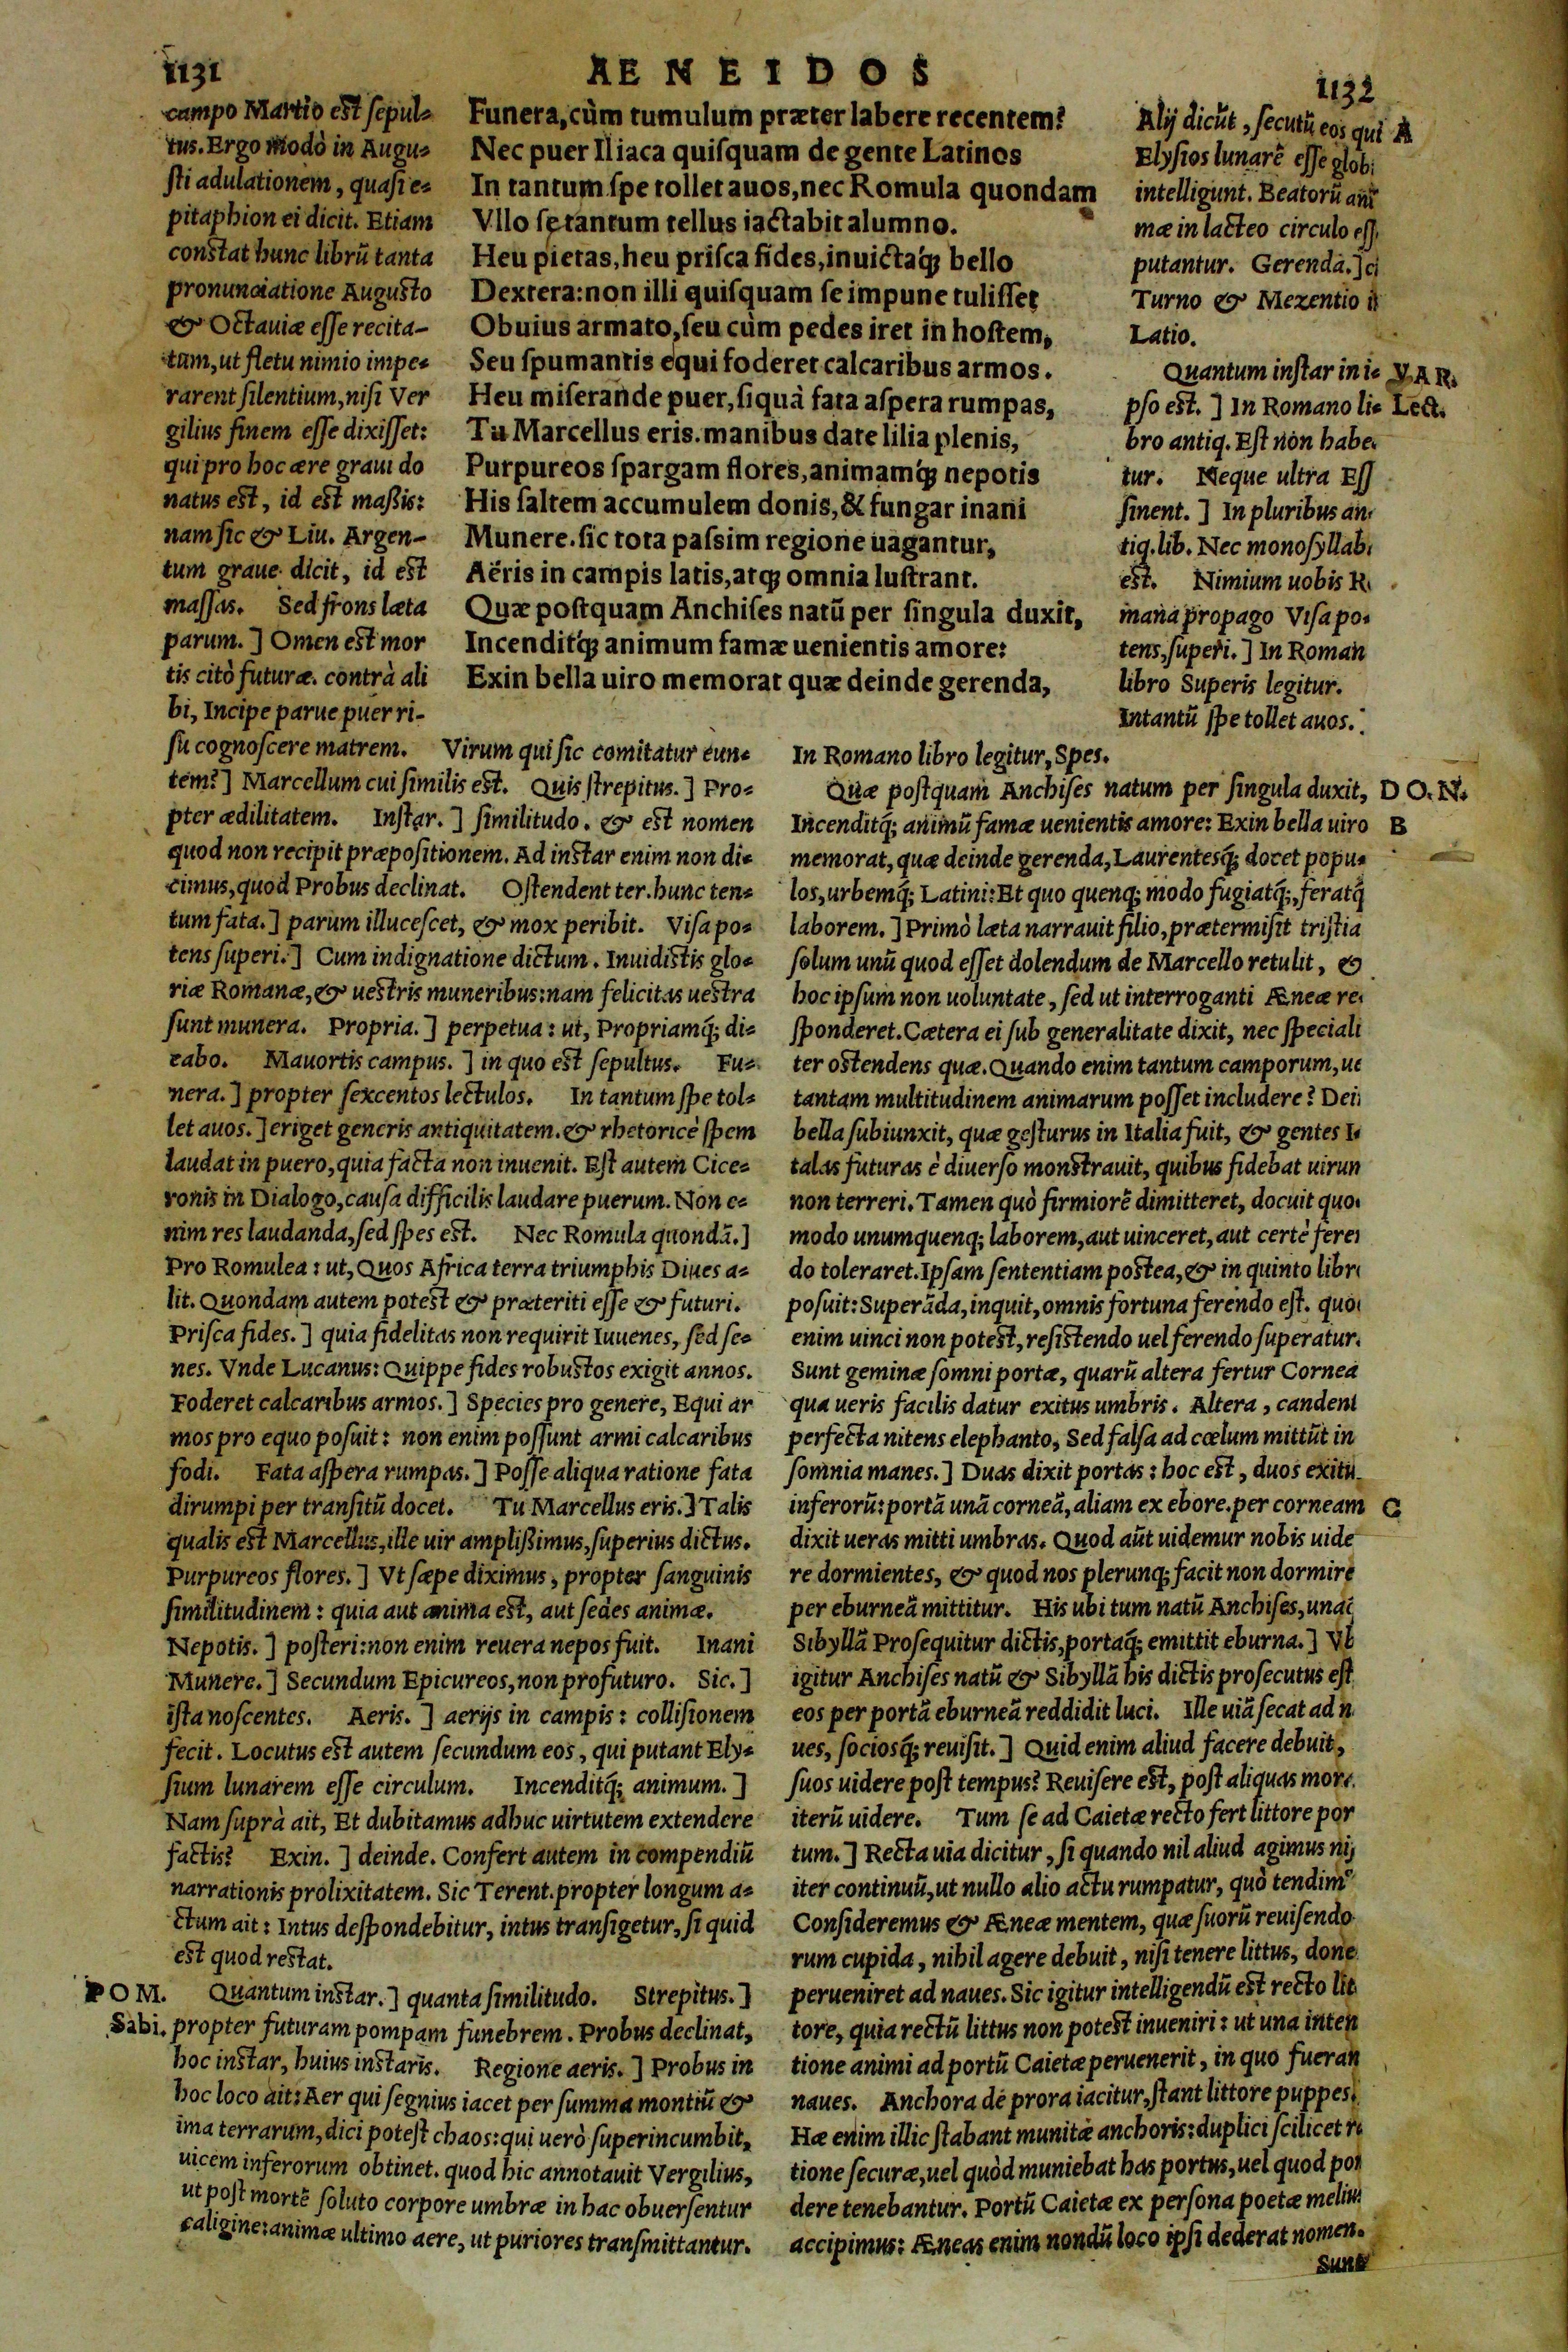 1131
AENEIDOS
1132
campo Martio est ſepul-
tus. Ergo modò in Augu-
ſti adulationem, quaſi e-
pitaphion ei dicit. Etiam
conſtat hunc librũ tanta
pronunciatione Auguſto
& Octauiæ eſſe recita-
tum, ut fletu nimio impe-
rarent ſilentium, niſi Ver
gilius finem eſſe dixiſſet:
qui pro hoc ære graui do
natus eſt, id eſt maßis:
nam ſic & Liu. Argen-
tum graue dicit, id eſt
maſſas. Sed frons læta
parum.] Omen eſt mor
tis citò futuræ. contrà ali
bi, Incipe parue puer ri-
Funera, cùm tumulum præter labere recentem?
Nec puer Iliaca quiſquam de gente Latinos
In tantum ſpe tollet auos, nec Romula quondam
Vllo ſe tantum tellus iactabit alumno.
Heu pietas, heu priſca fides, inuictaq́ꝫ bello
Dextera: non illi quiſquam ſe impune tuliſſet
Obuius armato, ſeu cùm pedes iret in hoſtem,
Seu ſpumantis equi foderet calcaribus armos.
Heu miſerande puer, ſiquà fata aſpera rumpas,
Tu Marcellus eris. manibus date lilia plenis,
Purpureos ſpargam flores, animamq́ꝫ nepotis
His ſaltem accumulem donis, & fungar inani
Munere. ſic tota paſsim regione uagantur,
Aëris in campis latis, atqꝫ omnia luſtrant.
Quæ poſtquam Anchiſes natũ per ſingula duxit,
Incenditq́ꝫ animum famæ uenientis amore:
Exin bella uiro memorat quæ deinde gerenda,
Alij dicũt, ſecutũ eos qui A
Elyſios lunarẽ eſſe globi
intelligunt. Beatorũ ani
mæ in lacteo circulo eſſ
putantur. Gerenda.] ci
Turno & Mezentio i
Latio.
Quantum inſtar in i- VAR.
pſo eſt.] In Romano li- Lect.
bro antiq. Eſt non habe
tur. Neque ultra Eſſ
ſinent.] In pluribus an
tiq. lib. Nec monoſyllab
eſt. Nimium uobis R
mana propago Viſa po-
tens, ſuperi.] In Roman
libro Superis legitur.
Intantũ ſpe tollet auos.
ſu cognoſcere matrem. Virum qui ſic comitatur eun-
tem?] Marcellum cui ſimilis eſt. Quis ſtrepitus.] Pro-
pter ædilitatem. Inſtar.] ſimilitudo. & eſt nomen
quod non recipit præpoſitionem. Ad inſtar enim non di-
cimus, quod Probus declinat. Oſtendent ter. hunc ten-
tum fata.] parum illuceſcet, & mox peribit. Viſa po-
tens ſuperi.] Cum indignatione dictum. Inuidiſtis glo-
riæ Romanæ, & ueſtris muneribus: nam felicitas ueſtra
ſunt munera. Propria.] perpetua: ut, Propriamq́; di-
cabo. Mauortis campus.] in quo eſt ſepultus. Fu-
nera.] propter ſexcentos lectulos. In tantum ſpe tol-
let auos.] eriget generis antiquitatem. & rhetoricè ſpem
laudat in puero, quia facta non inuenit. Eſt autem Cice-
ronis in Dialogo, cauſa difficilis laudare puerum. Non e-
nim res laudanda, ſed ſpes eſt. Nec Romula quondã.]
Pro Romulea: ut, Quos Africa terra triumphis Diues a-
lit. Quondam autem poteſt & præteriti eſſe & futuri.
Priſca fides.] quia fidelitas non requirit Iuuenes, ſed ſe-
nes. Vnde Lucanus: Quippe fides robuſtos exigit annos.
Foderet calcaribus armos.] Species pro genere, Equi ar
mos pro equo poſuit: non enim poſſunt armi calcaribus
fodi. Fata aſpera rumpas.] Poſſe aliqua ratione fata
dirumpi per tranſitũ docet. Tu Marcellus eris.] Talis
qualis eſt Marcellus, ille uir amplißimus, ſuperius dictus.
Purpureos flores.] Vt ſæpe diximus, propter ſanguinis
ſimilitudinem: quia aut anima eſt, aut ſedes animæ.
Nepotis.] poſteri: non enim reuera nepos fuit. Inani
Munere.] Secundum Epicureos, non profuturo. Sic.]
iſta noſcentes. Aeris.] aerijs in campis: colliſionem
fecit. Locutus eſt autem ſecundum eos, qui putant Ely-
ſium lunarem eſſe circulum. Incenditq́; animum.]
Nam ſuprà ait, Et dubitamus adhuc uirtutem extendere
factis? Exin.] deinde. Confert autem in compendiũ
narrationis prolixitatem. Sic Terent. propter longum a-
ctum ait: Intus deſpondebitur, intus tranſigetur, ſi quid
eſt quod reſtat.
POM. Quantum inſtar.] quanta ſimilitudo. Strepitus.]
Sabi. propter futuram pompam funebrem. Probus declinat,
hoc inſtar, huius inſtaris. Regione aeris.] Probus in
hoc loco ait: Aer qui ſegnius iacet per ſumma montiũ &
ima terrarum, dici poteſt chaos: qui uerò ſuperincumbit,
uicem inferorum obtinet. quod hic annotauit Vergilius,
ut poſt mortẽ ſoluto corpore umbræ in hac obuerſentur
caligine: animæ ultimo aere, ut puriores tranſmittantur.
In Romano libro legitur, Spes.
Quæ poſtquam Anchiſes natum per ſingula duxit, DON.
Incenditq́; animũ famæ uenientis amore: Exin bella uiro B
memorat, quæ deinde gerenda, Laurentesq́; docet popu-
los, urbemq́; Latini: Et quo quenq; modo fugiatq́;, feratq́
laborem.] Primò læta narrauit filio, prætermiſit triſtia
ſolum unũ quod eſſet dolendum de Marcello retulit, &
hoc ipſum non uoluntate, ſed ut interroganti Æneæ re
ſponderet. Cætera ei ſub generalitate dixit, nec ſpeciali
ter oſtendens quæ. Quando enim tantum camporum, ue
tantam multitudinem animarum poſſet includere? Dei
bella ſubiunxit, quæ geſturus in Italia fuit, & gentes I-
talas futuras è diuerſo monſtrauit, quibus fidebat uirun
non terreri. Tamen quò firmiorẽ dimitteret, docuit quo
modo unumquenq; laborem, aut uinceret, aut certè fere
do toleraret. Ipſam ſententiam poſtea, & in quinto libr
poſuit: Superãda, inquit, omnis fortuna ferendo eſt. quo
enim uinci non poteſt, reſiſtendo uel ferendo ſuperatur.
Sunt geminæ ſomni portæ, quarũ altera fertur Cornea
qua ueris facilis datur exitus umbris. Altera, candent
perfecta nitens elephanto, Sed falſa ad cœlum mittũt in
ſomnia manes.] Duas dixit portas: hoc eſt, duos exitu
inferorũ: portã unã corneã, aliam ex ebore. per corneam C
dixit ueras mitti umbras. Quod aũt uidemur nobis uide
re dormientes, & quod nos plerunq; facit non dormire
per eburneã mittitur. His ubi tum natũ Anchiſes, unac
Sibyllã Proſequitur dictis, portaq́; emittit eburna.] Vb
igitur Anchiſes natũ & Sibyllã his dictis proſecutus eſt
eos per portã eburneã reddidit luci. Ille uiã ſecat ad n
ues, ſociosq́; reuiſit.] Quid enim aliud facere debuit,
ſuos uidere poſt tempus? Reuiſere eſt, poſt aliquas mor
iterũ uidere. Tum ſe ad Caietæ recto fert littore por
tum.] Recta uia dicitur, ſi quando nil aliud agimus niſ
iter continuũ, ut nullo alio actu rumpatur, quò tendim⁹
Conſideremus & Æneæ mentem, quæ ſuorũ reuiſendo
rum cupida, nihil agere debuit, niſi tenere littus, done
perueniret ad naues. Sic igitur intelligendũ eſt recto lit
tore, quia rectũ littus non poteſt inueniri: ut una inten
tione animi ad portũ Caietæ peruenerit, in quo fueran
naues. Anchora de prora iacitur, ſtant littore puppes.
Hæ enim illic ſtabant munitæ anchoris: duplici ſcilicet r
tione ſecuræ, uel quòd muniebat has portus, uel quod pon
dere tenebantur. Portũ Caietæ ex perſona poetæ melius
accipimus: Æneas enim nondũ loco ipſi dederat nomen.
Sunt